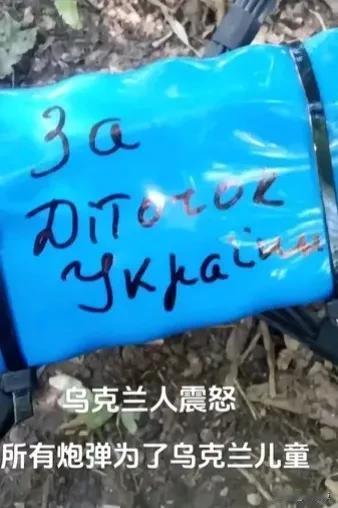 За
Діточок
України
乌克兰人震怒
所有炮弹为了乌克兰儿童